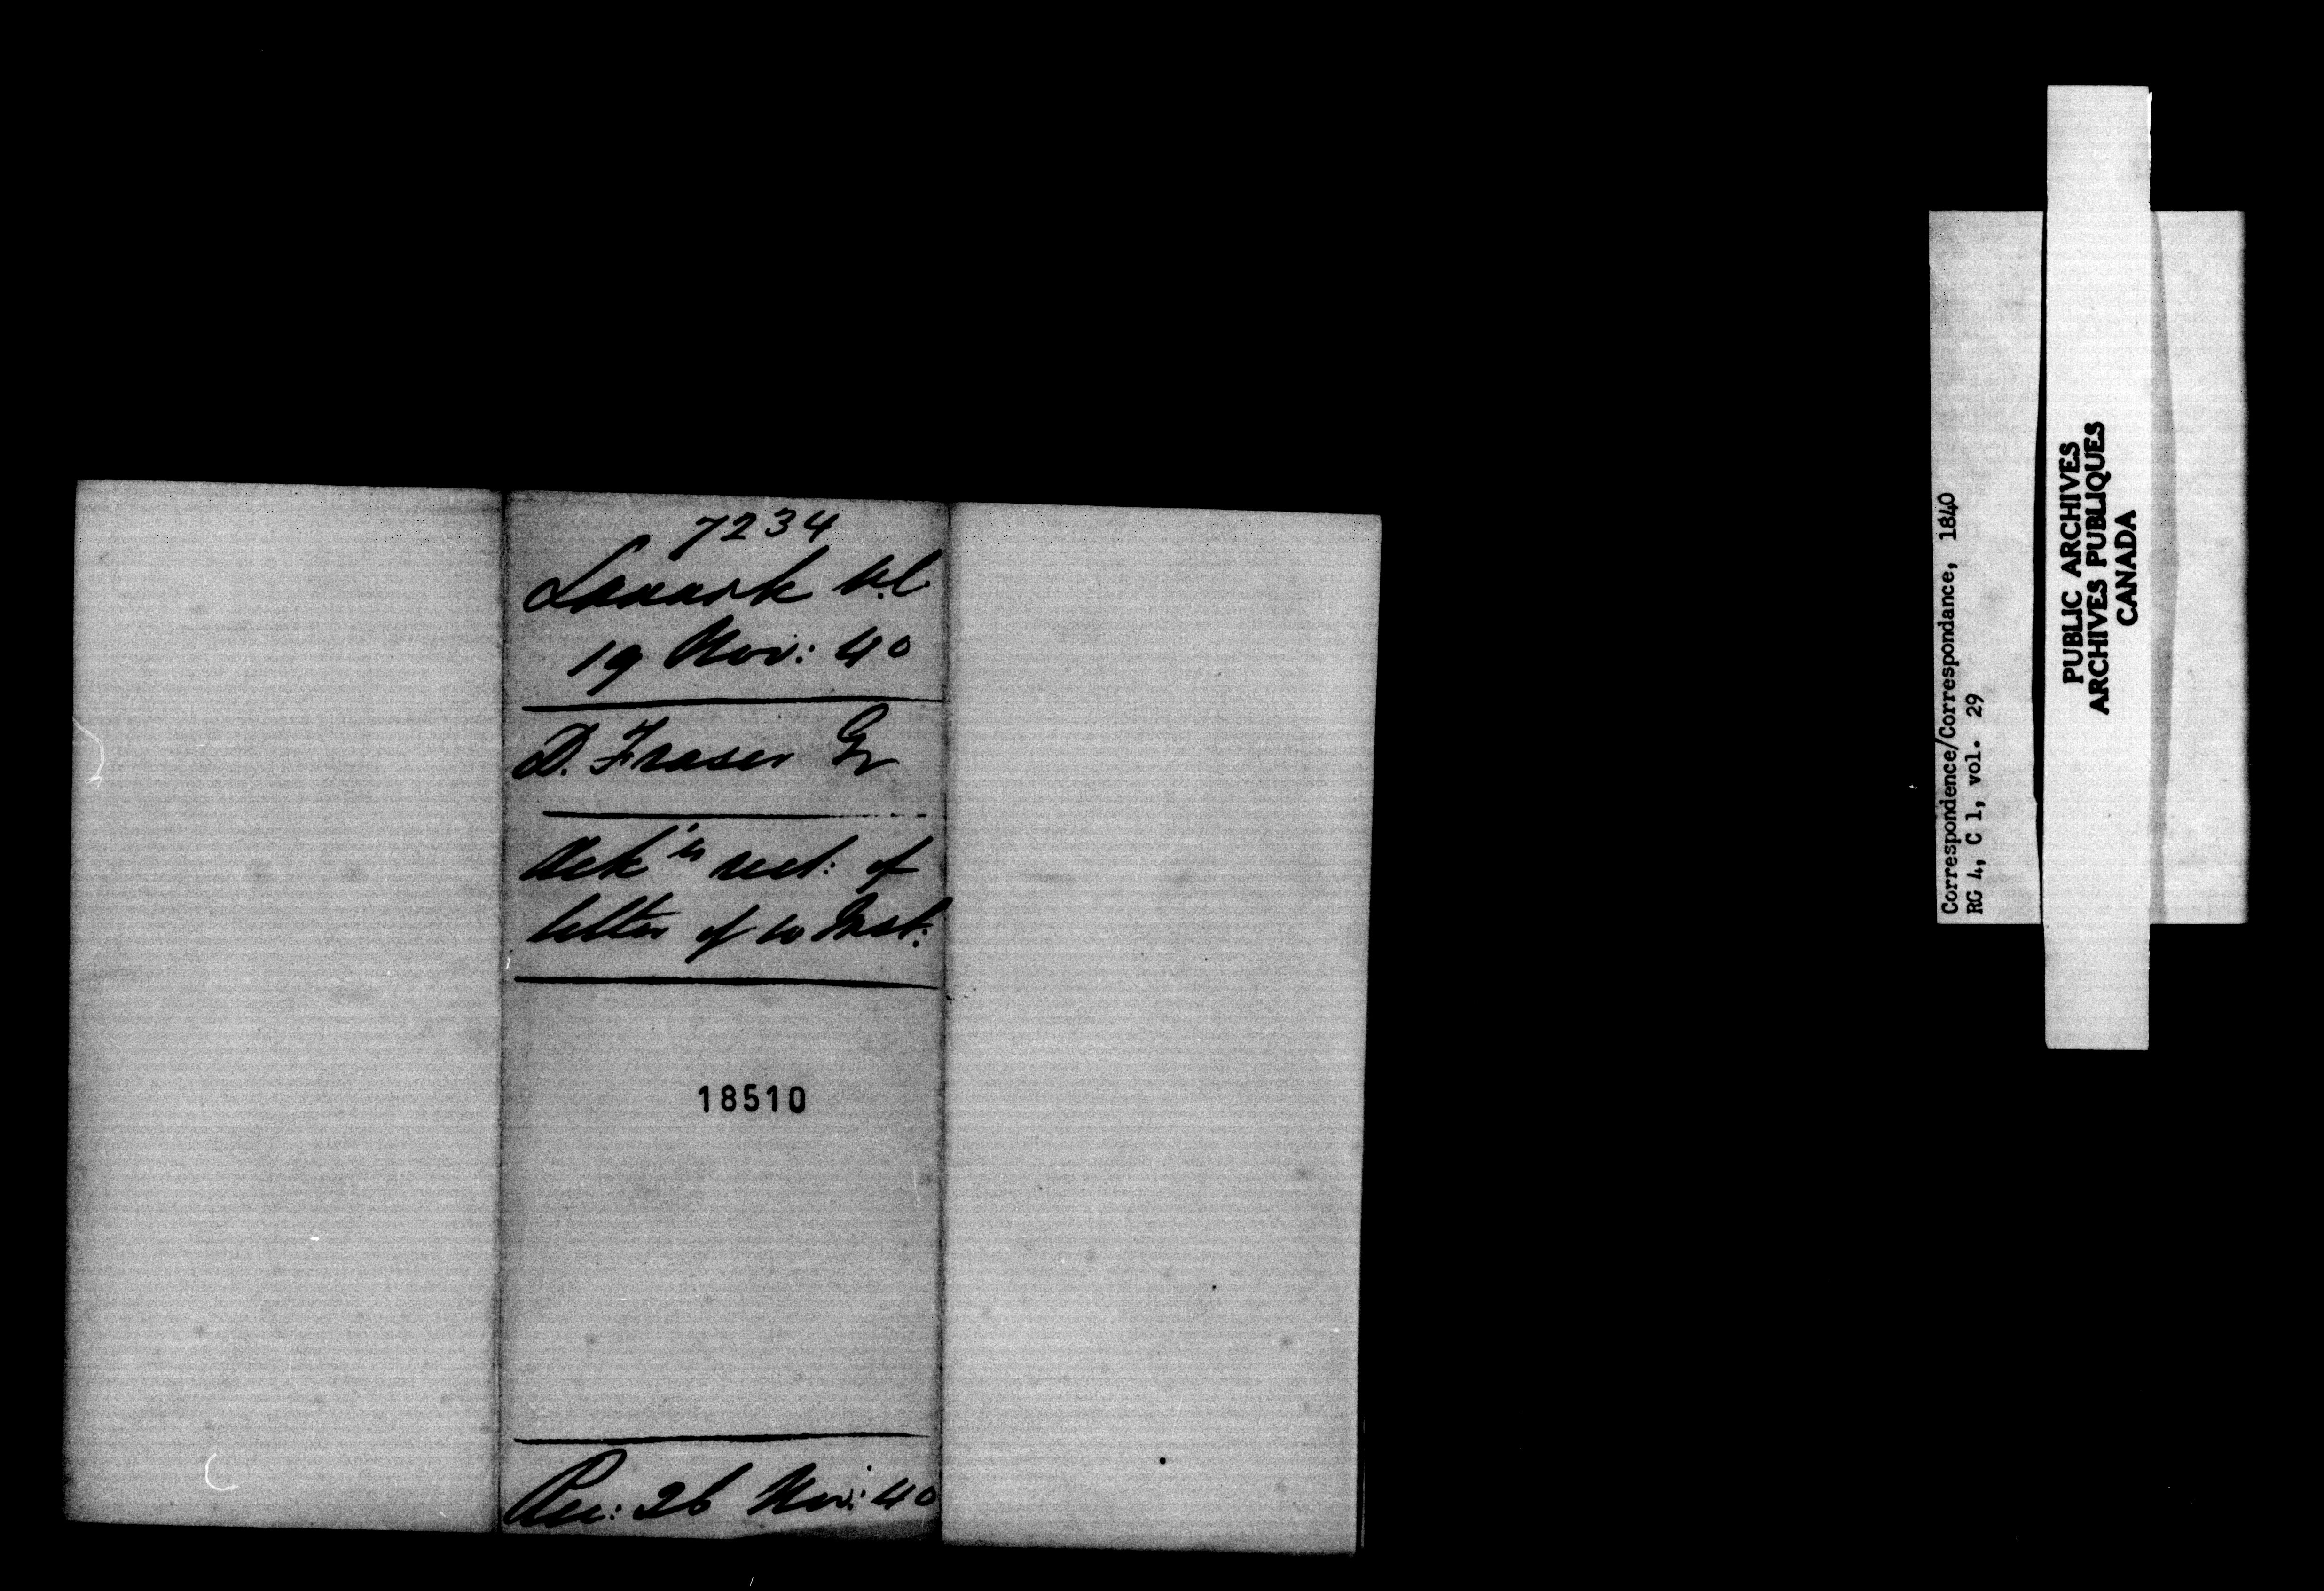 7234
Lanark U.C
19 Nov: 40
D. Fraser
Ack'g rect: of
letter of 10 Inst:
18510
Rec: 26 Nov: 40
Correspondence/Correspondance, 1840
RG 4, C 1, vol. 29
PUBLIC ARCHIVES
ARCHIVES PUBLIQUES
CANADA